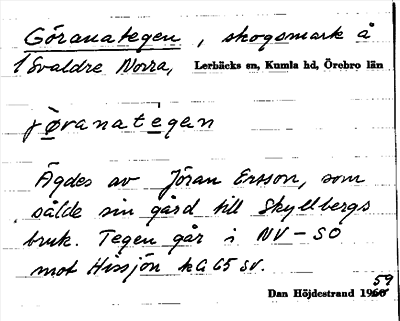 Göranategen, skogsmark å
Svaldre Norra, Lerbäcks sn, Kumla hd, Örebro län
jøvanategan
Ägdes av Jöran Ersson, som
sålde sin gård till Skyllbergs
bruk. Tegen går i NV-SO
mot Hissjön ka 65 SV.
Dan Höjdestrand 1960 59